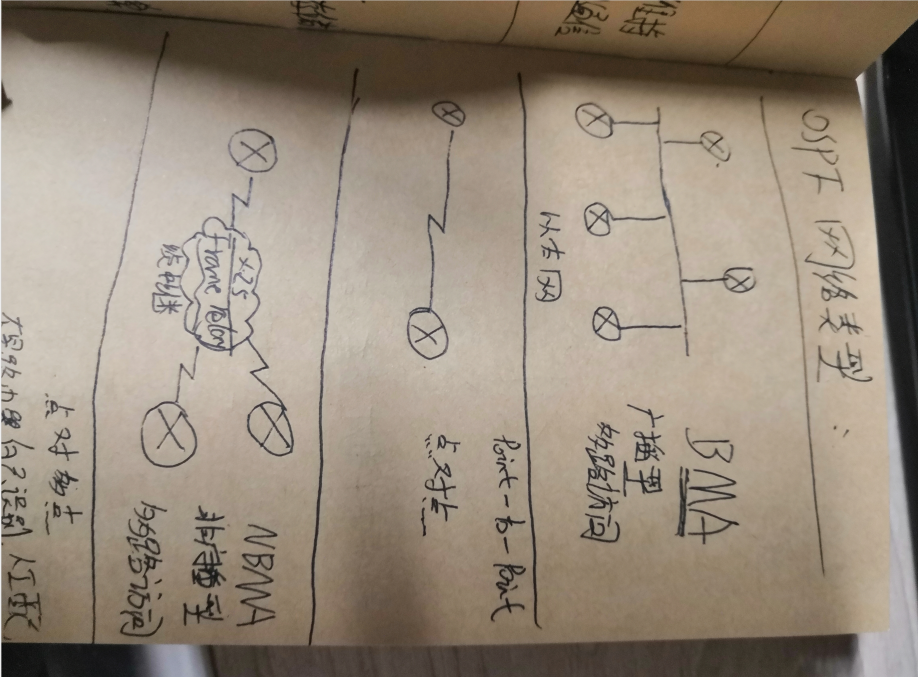 OSPF 网络类型:
BMA
广播型
多路访问
以太网
Point-to-Point
点对点
NBMA
非广播型
多路访问
X.25
frame relay
点对多点